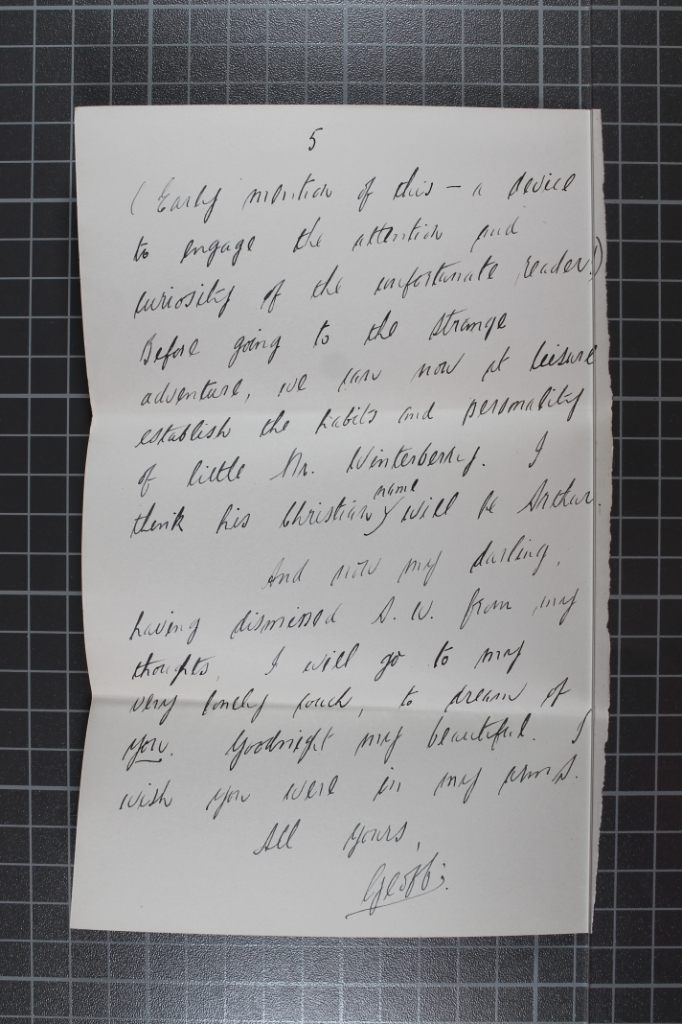 5
(Early mention of this - a device
to engage the attention and
curiosity of the unfortunate reader!)
Before going to the strange
adventure, we can now at leisure
establish the habits and personality
of little Mr. Winterberry. I
think his Christian name will be Arthur.
And now my darling,
having dismissed A. W. from my
thoughts, I will go to my
very lonely couch, to dream of
you. Goodnight my beautiful. I
wish you were in my arms.
All yours,